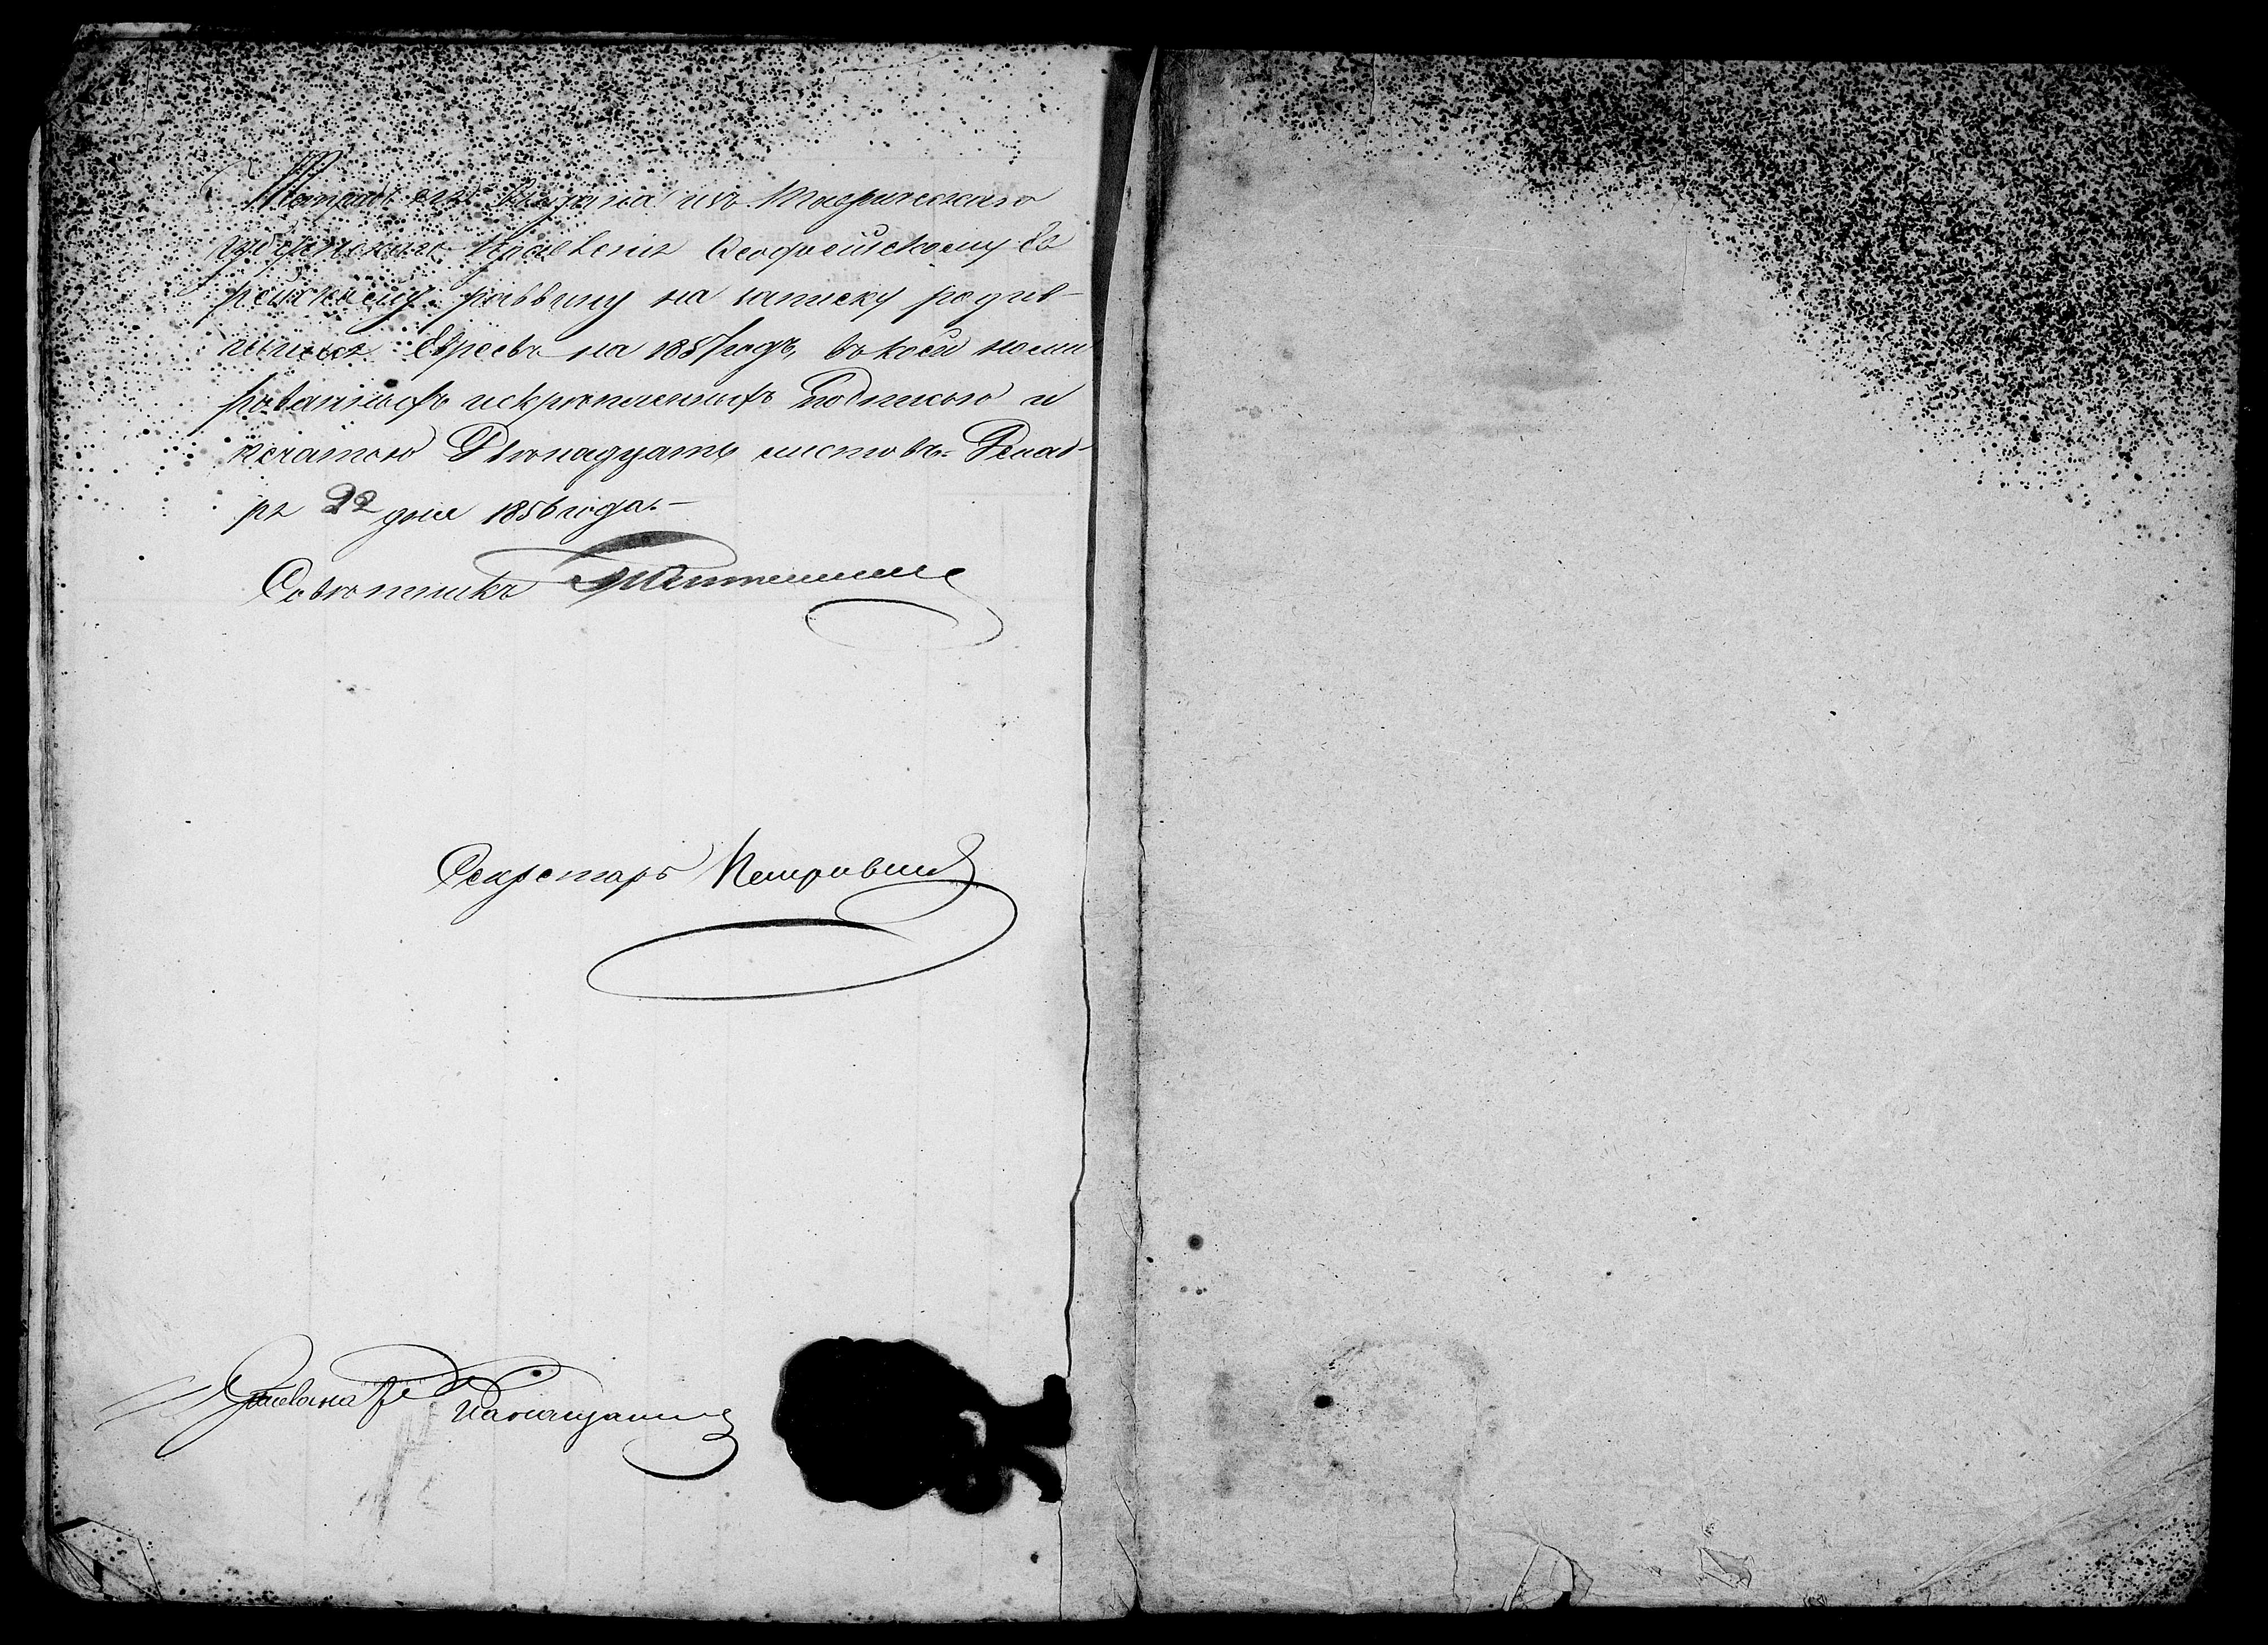 Тетрадь сія выдана изъ Таврическаго
губернскаго правленія Ѳеодосійскому Ев
рейскому раввину на записку родив-
шихся Евреевъ на 1857 годъ, въ коей номи
рованныхъ и скрѣпленныхъ подписью и
печатью Двѣнадцать листовъ. Декаб-
ря 22 дня 1856 года.-
Совѣтникъ
Секретарь